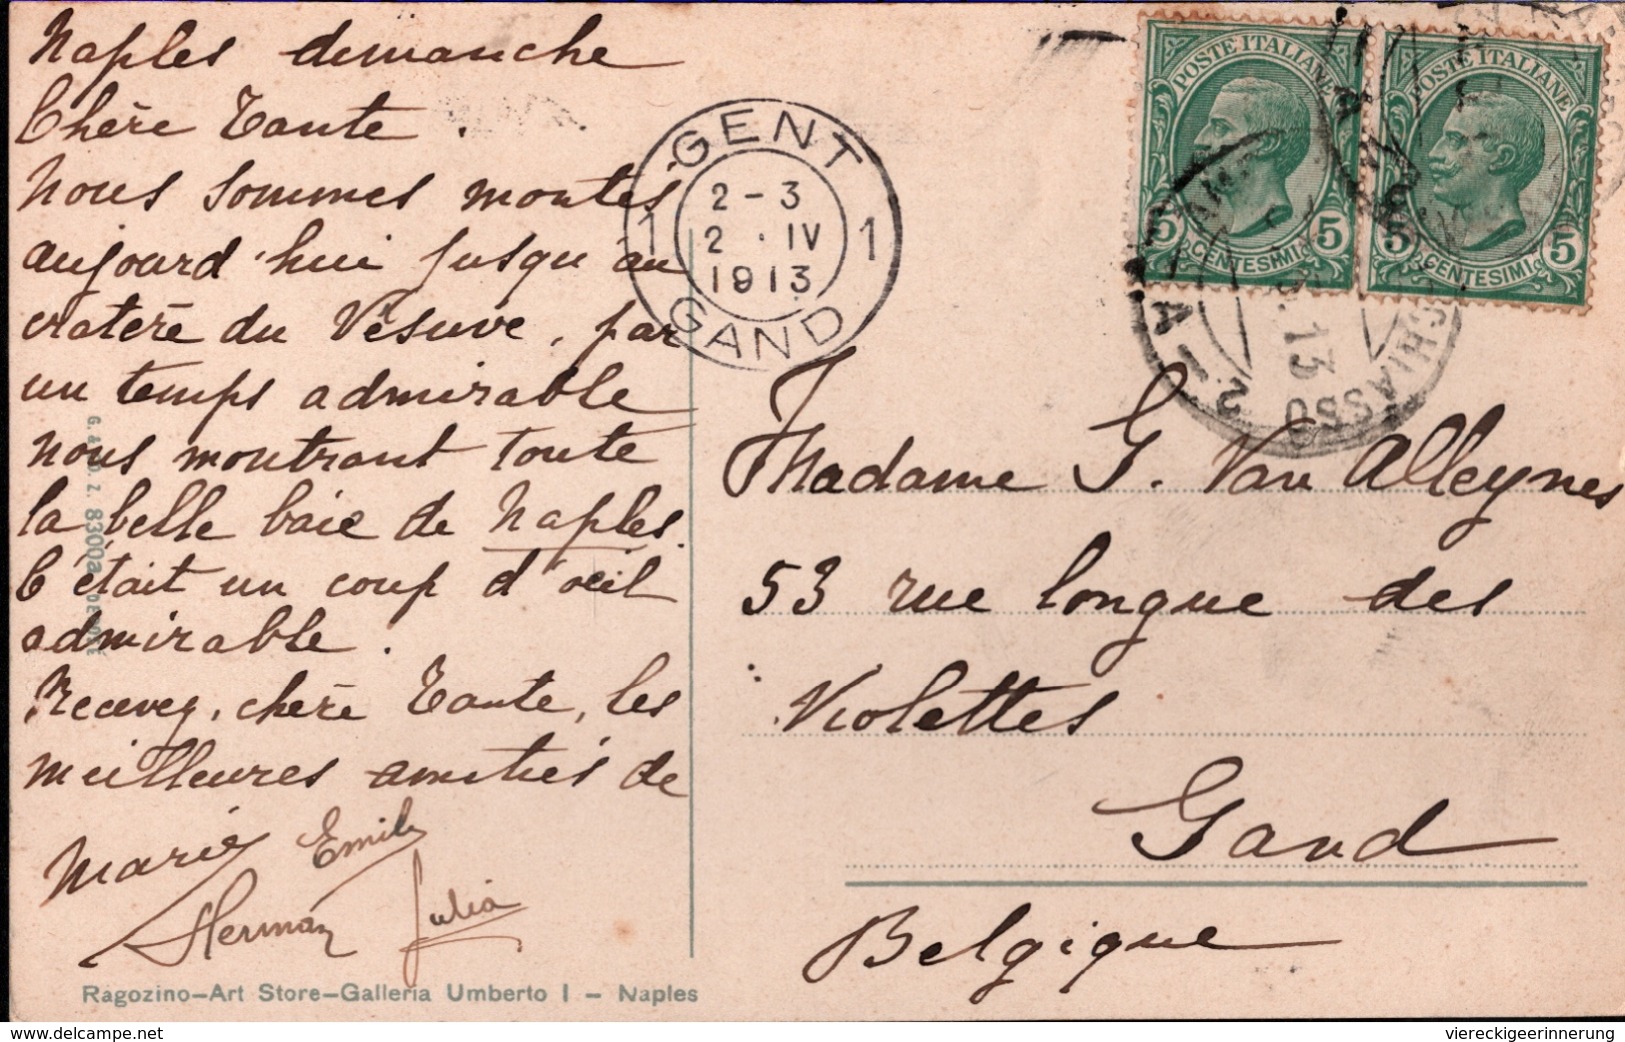 Naples dimanche
Chère Tante.
Nous sommes montés
aujourd'hui jusqu'au
cratère du Vésuve, par
un temps admirable
nous montrant toute
la belle baie de Naples.
C'était un coup d'oeil
admirable.
Recevez, chère Tante, les
meilleures amitiés de
Marie Emile
Herman Julia
Ragozino-Art Store-Galleria Umberto I - Naples
GENT
2-3
1 2 . IV 1
1913
GAND
POSTE ITALIANE
5 CENTESIMI 5
POSTE ITALIANE
5 CENTESIMI 5
13
CHIASSO
Madame G. Van Alleynes
53 rue longue des
Violettes
Gand
Belgique
viereckigeerinnerung